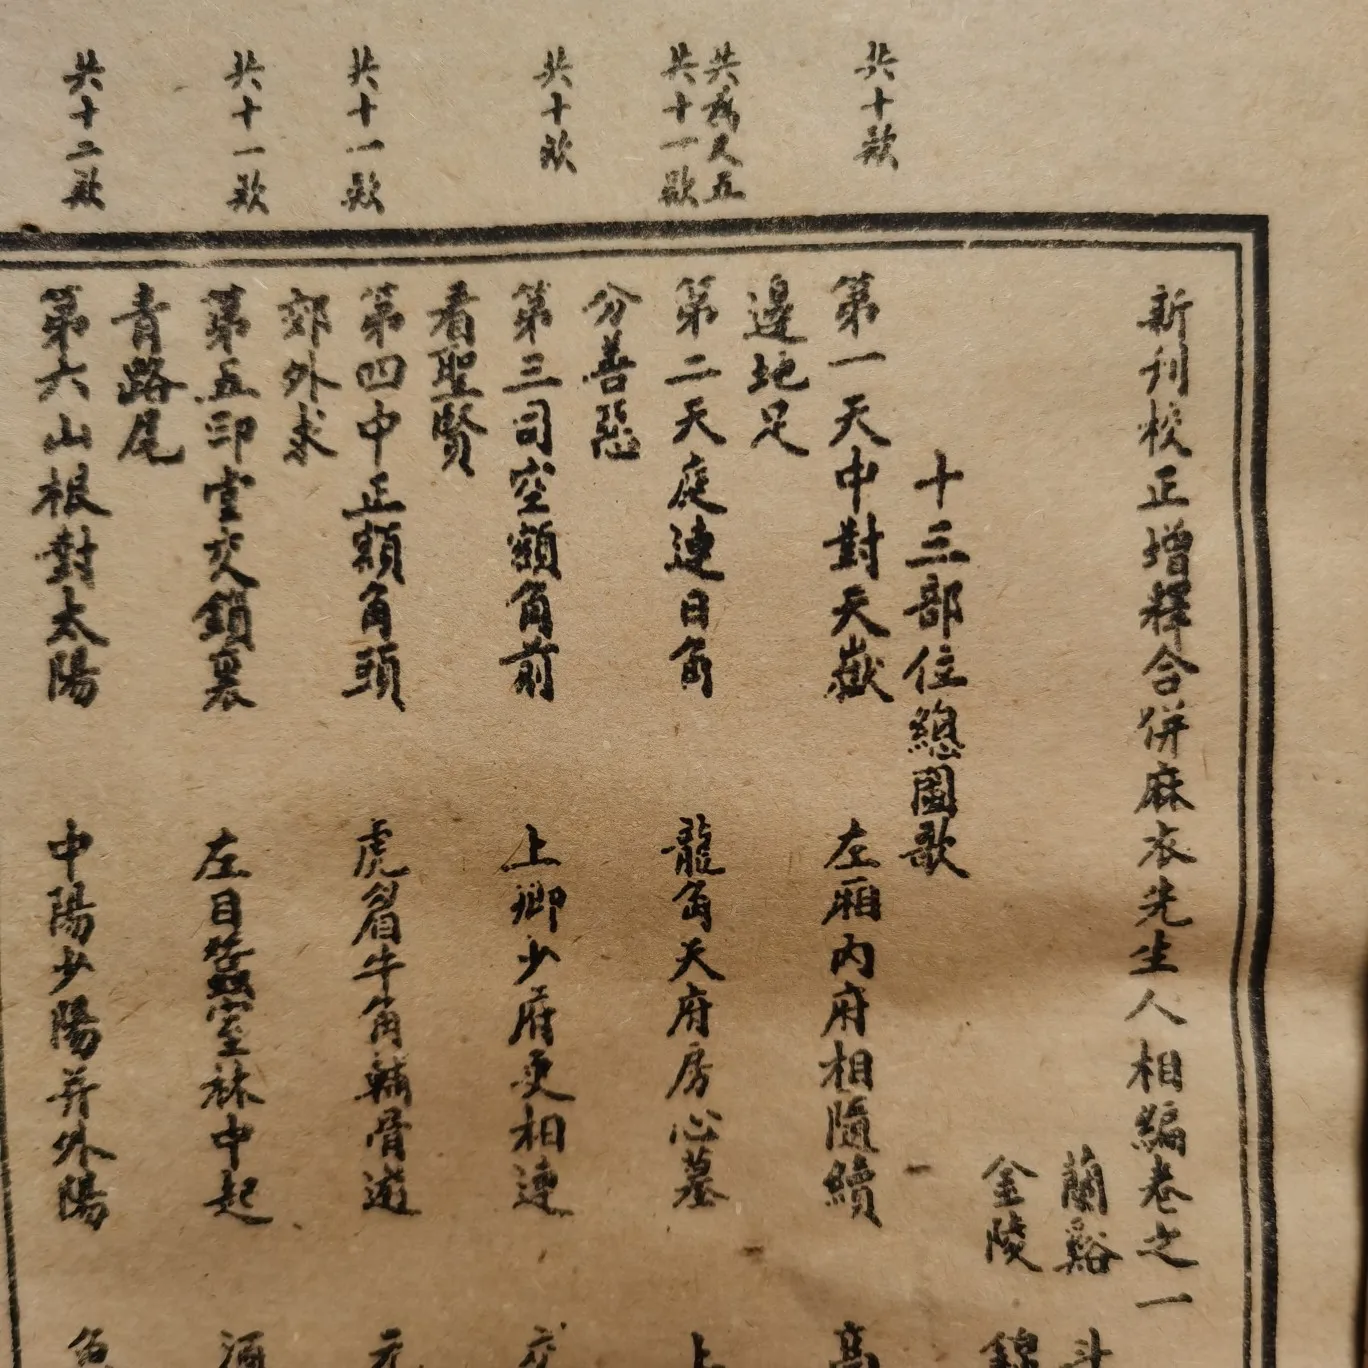 新刊校正增釋合併麻衣先生人相編卷之一
蘭谿
金陵
十三部位總圖歌
共十款
第一天中對天嶽 左厢內府相隨續
邊地足
共十一款
第二天庭連日角 龍角天府房心墓
分善惡
共十款
第三司空額角前 上卿少府更相連
看聖賢
共十一款
第四中正額角頭 虎眉牛角輔骨遊
郊外求
共十一款
第五印堂交鎖裏 左目蠶室林中起
青路尾
共十二款
第六山根對太陽 中陽少陽并外陽